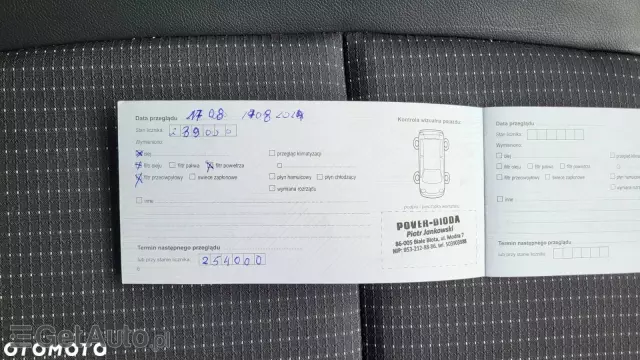 Data przeglądu 17 08 1708 2024
Stan licznika 239000
Wymieniono:
olej
przegląd klimatyzacji
filtr oleju filtr paliwa filtr powietrza
filtr przeciwpyłowy świece zapłonowe płyn hamulcowy płyn chłodzący
wymiana rozrządu
inne
Termin następnego przeglądu
lub przy stanie licznika 254000
6
Kontrola wizualna pojazdu
POVER-DIODA
Piotr Jankowski
86-005 Białe Błota, ul. Modra 7
Data przeglądu
Stan licznika
Wymieniono:
olej
filtr oleju filtr paliwa filtr powietrza
filtr przeciwpyłowy świece zapłonowe
inne
Termin następnego przeglądu
lub przy stanie licznika
GetAuto.pl
OTOMOTO